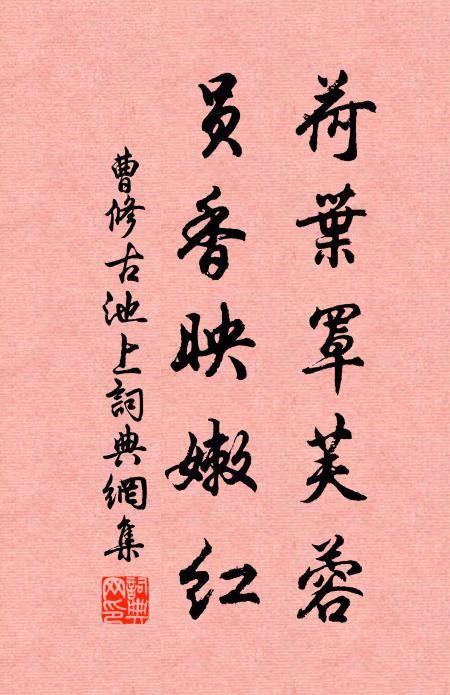 荷葉罩芙蓉
员香映嫩红
曹修古池上詞典網集
詞典网印